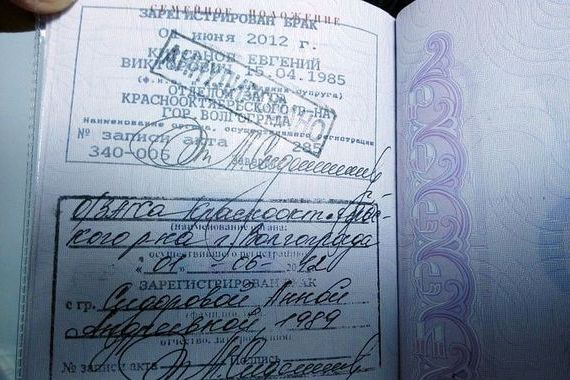 СЕМЕЙНОЕ ПОЛОЖЕНИЕ
ЗАРЕГИСТРИРОВАН БРАК
01 июня 2012 г.
ЕВГЕНИЙ
15.04.1985
ОТДЕЛОМ ЗАГСА
КРАСНООКТЯБРЬСКОГО Р-НА
ГОР. ВОЛГОГРАДА
Наименование органа, осуществившего регистрацию
№ записи акта 285
340-006
О/ЗАГСа Краснооктябрьс-
кого р-на г. Волгограда
(наименование органа,
осуществившего регистрацию)
"01" - 06 - 2012
ЗАРЕГИСТРИРОВАН БРАК
с гр. Сидоровой Анной
Андреевной, 1989
отчество, дата рождения
№ записи акта Подпись